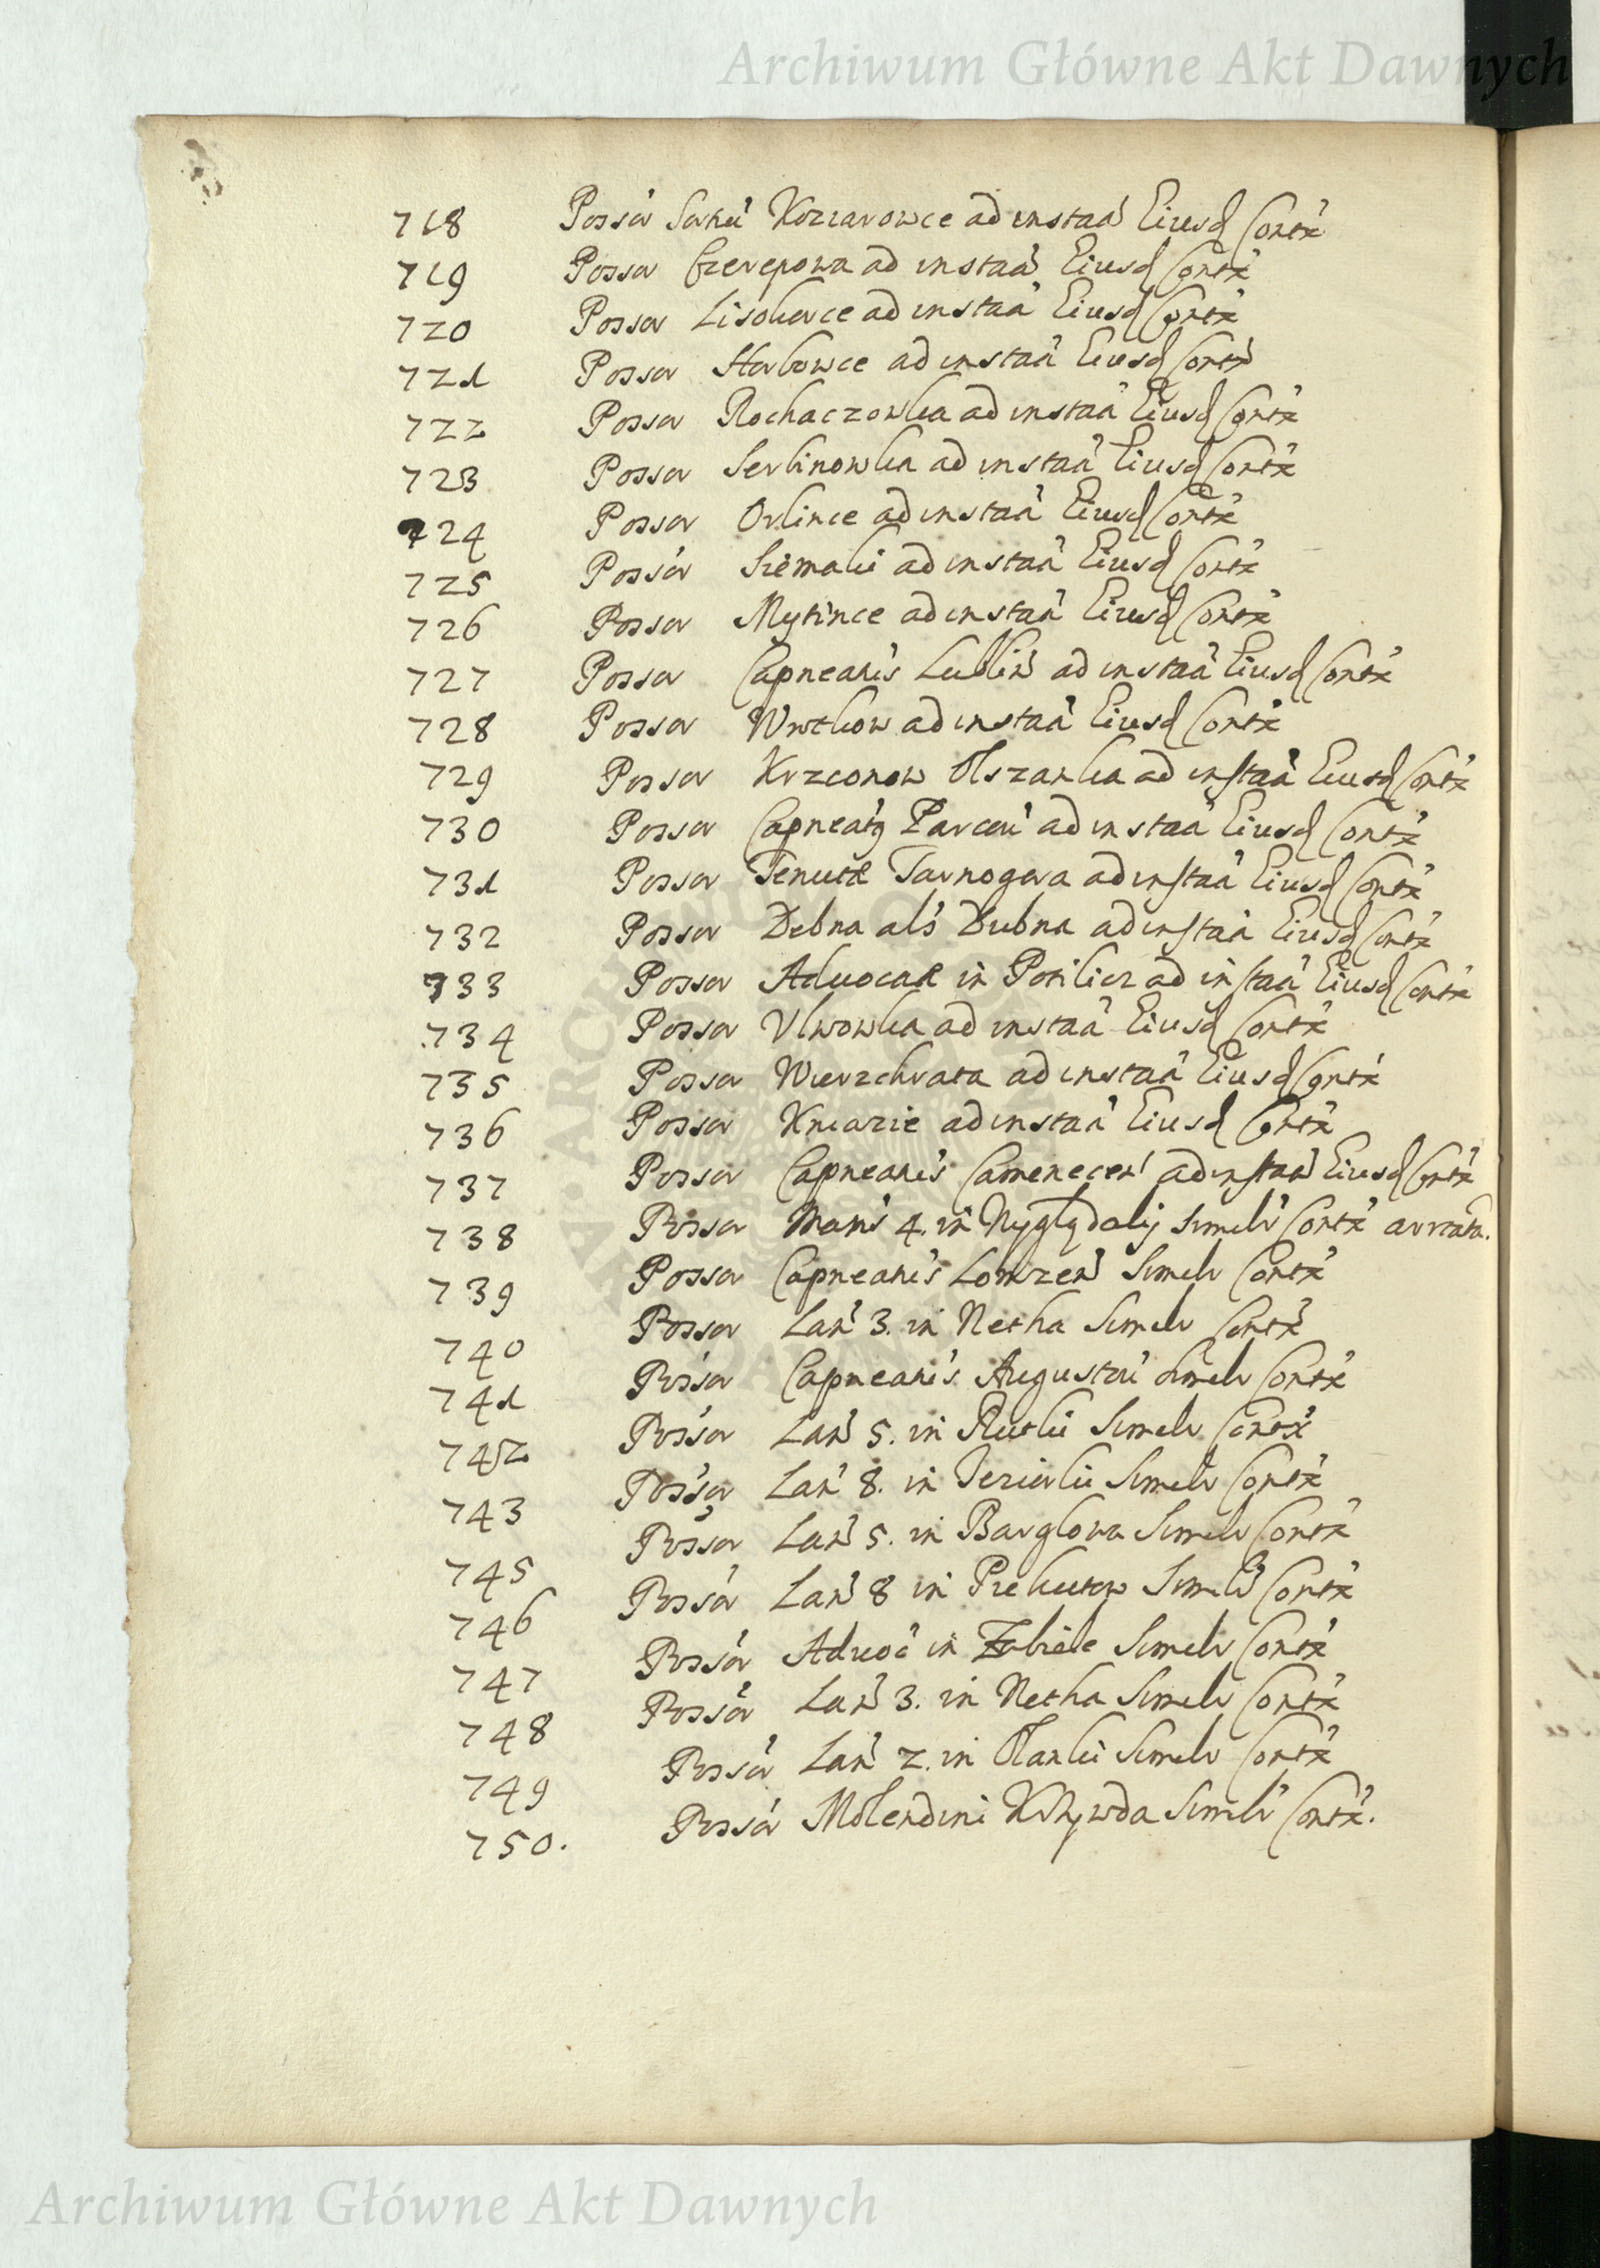 Archiwum Główne Akt Dawnych
718 Possr Koziarowce ad instaā Eiusd Contx
719 Possr Czerepowa ad instaā Eiusd Contx
720 Possr Lisowce ad instaā Eiusd Contx
721 Possr Horbowce ad instaā Eiusd Contx
722 Possr Rochaczowka ad instaā Eiusd Contx
723 Possr Serbinowka ad instaā Eiusd Contx
724 Possr Orlince ad instaā Eiusd Contx
725 Possr Siemaki ad instaā Eiusd Contx
726 Possr Mytince ad instaā Eiusd Contx
727 Possr Capneatūs Lublin ad instaā Eiusd Contx
728 Possr Wrotkow ad instaā Eiusd Contx
729 Possr Krzconow Olszanka ad instaā Eiusd Contx
730 Possr Capneatq Parcoū ad instaā Eiusd Contx
731 Possr Tenutæ Tarnogora ad instaā Eiusd Contx
732 Possr Debna als Dubna ad instaā Eiusd Contx
733 Possr Aduocaæ in Potilicz ad instaā Eiusd Contx
734 Possr Vlwowka ad instaā Eiusd Contx
735 Possr Wierzchrata ad instaā Eiusd Contx
736 Possr Kniazie ad instaā Eiusd Contx
737 Possr Capneatūs Camenecen ad instaā Eiusd Contx
738 Possr Mans 4. in simelr Contx
739 Possr Capneatūs Lomzen Simelr Contx
740 Possr Lan 3. in Netha Simelr Contx
741 Possr Capneatūs Augustoū simelr Contx
742 Possr Lan 5. in Rutki Simelr Contx
743 Possr Lan 8. in Jeziorki Simelr Contx
745 Possr Lan 5. in Barglowa Simelr Contx
746 Possr Lan 8 in Piekutow Simelr Contx
747 Possr Aduoc in Zabiele Simelr Contx
748 Possr Lan 3. in Netha Simelr Contx
749 Possr Lan 2. in Olanki Simelr Contx
750. Possr Molendini Krzywda Simelr Contx.
Archiwum Główne Akt Dawnych